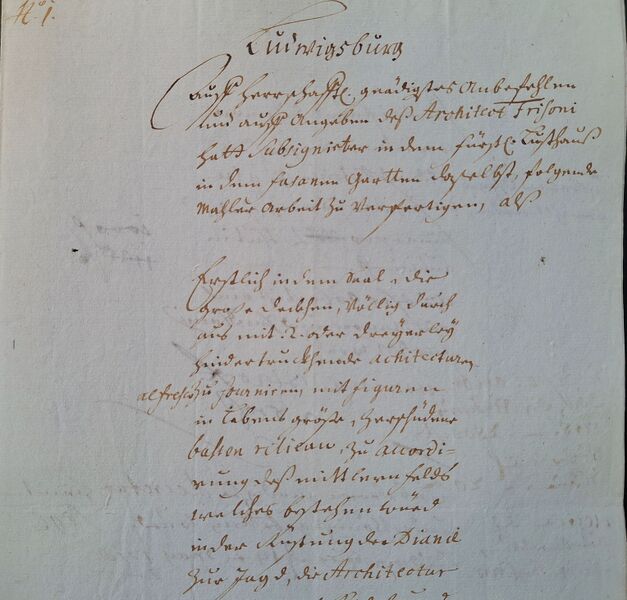 N: 1.
Ludwigsburg
Auff Herrschafftl. gnädigstes Anbefehlen
und auff Angeben deß Architect Frisoni
hatt Subsignirter in dem Fürstl. Lusthauß
in dem Fasanen Gartten daselbst, folgende
Mahler Arbeit zu Verfertigen, alß
Erstlich in dem Saal, die
große deckhen, völlig durch
auß mit 2. oder dreyerley
hindertruckhende achitecturen
alfresco zu fournieren, mit figuren
in lebens größe, verschidene
bassen relieau, zu accordi-
rung deß mittlern felds
welches bestehen würd
in der Rüstung der Diane
zur Jagd, die Architectur